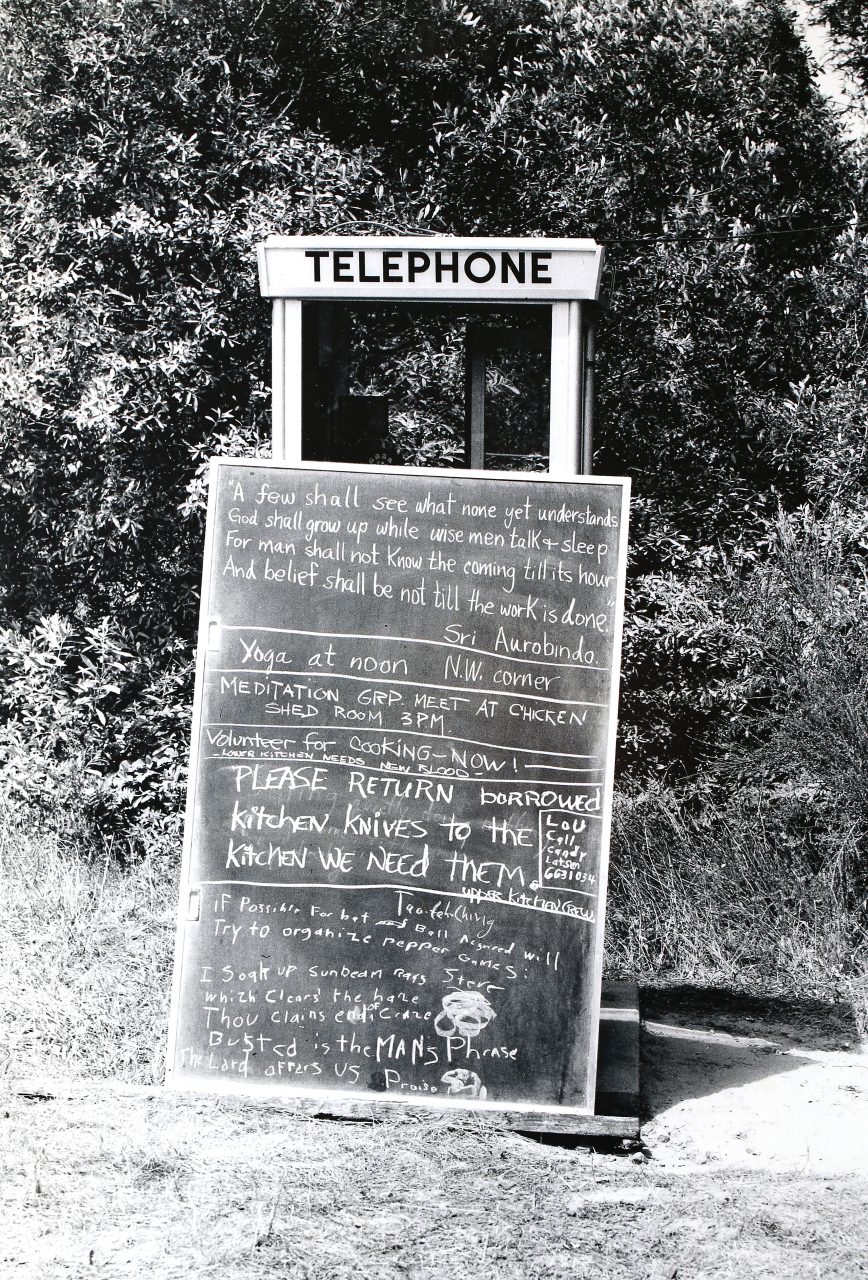 TELEPHONE
"A few shall see what none yet understands
God shall grow up while wise men talk + sleep
For man shall not know the coming till its hour
And belief shall be not till the work is done."
Sri Aurobindo.
Yoga at noon N.W. corner
MEDITATION GRP. MEET AT CHICKEN
SHED ROOM 3PM.
Volunteer for COOKING - NOW!
- LOWER KITCHEN NEEDS NEW BLOOD -
PLEASE RETURN borrowed
kitchen knives to the
kitchen WE NEED them.
UPPER KITCHEN CREW
LOU
Call
Candy
Latson
6631034
Tao-teh-Ching
IF Possible For bat and Ball Aquired will
Try to organize pepper GAMES:
I Soak up sunbeam rays Steve
which Clears the haze
Thou claims end of Craze
Busted is the MANs Phrase
The Lord offers US Praise